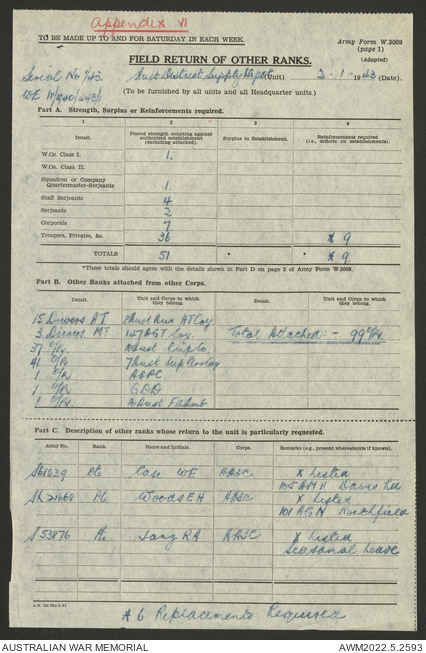 Appendix VI
TO BE MADE UP TO AND FOR SATURDAY IN EACH WEEK.
Army Form W.3009
(page 1)
(Adapted)
FIELD RETURN OF OTHER RANKS.
Serial No 1/43.
Aust District Supply Depot (Unit) 2 . 1 . 1943 (Date).
(To be furnished by all units and all Headquarter units.)
Part A. Strength, Surplus or Reinforcements required.
1 2 3 4
Detail. Posted strength counting against authorised establishment (excluding attached). Surplus to Establishment. Reinforcements required (i.e., deficits on establishments).
W.Os. Class I. 1.
W.Os. Class II.
Squadron or Company Quartermaster-Serjeants 1.
Staff Serjeants 4
Serjeants 2
Corporals 7
Troopers, Privates, &c. 36 * 9
TOTALS 51 * * 9
*These totals should agree with the details shown in Part D on page 2 of Army Form W.3009.
Part B. Other Ranks attached from other Corps.
Detail. Unit and Corps to which they belong. Detail. Unit and Corps to which they belong.
15 Drivers HT
3 Drivers MT 147 AGT Coy. Total Attached:- 99
37
41
1 AAPC.
1 GDD
1
Part C. Description of other ranks whose return to the unit is particularly requested.
Army No. Rank. Name and Initials. Corps. Remarks (e.g., present whereabouts if known).
Pte Case WE AASC X Listed
105 AMH
Pte Woods EH AASC X Listed
101 AGH Northfield
S53876 Pte Lang RA AASC X Listed
Seasonal Leave
* 6 Replacements Required
AUSTRALIAN WAR MEMORIAL
AWM2022.5.2593